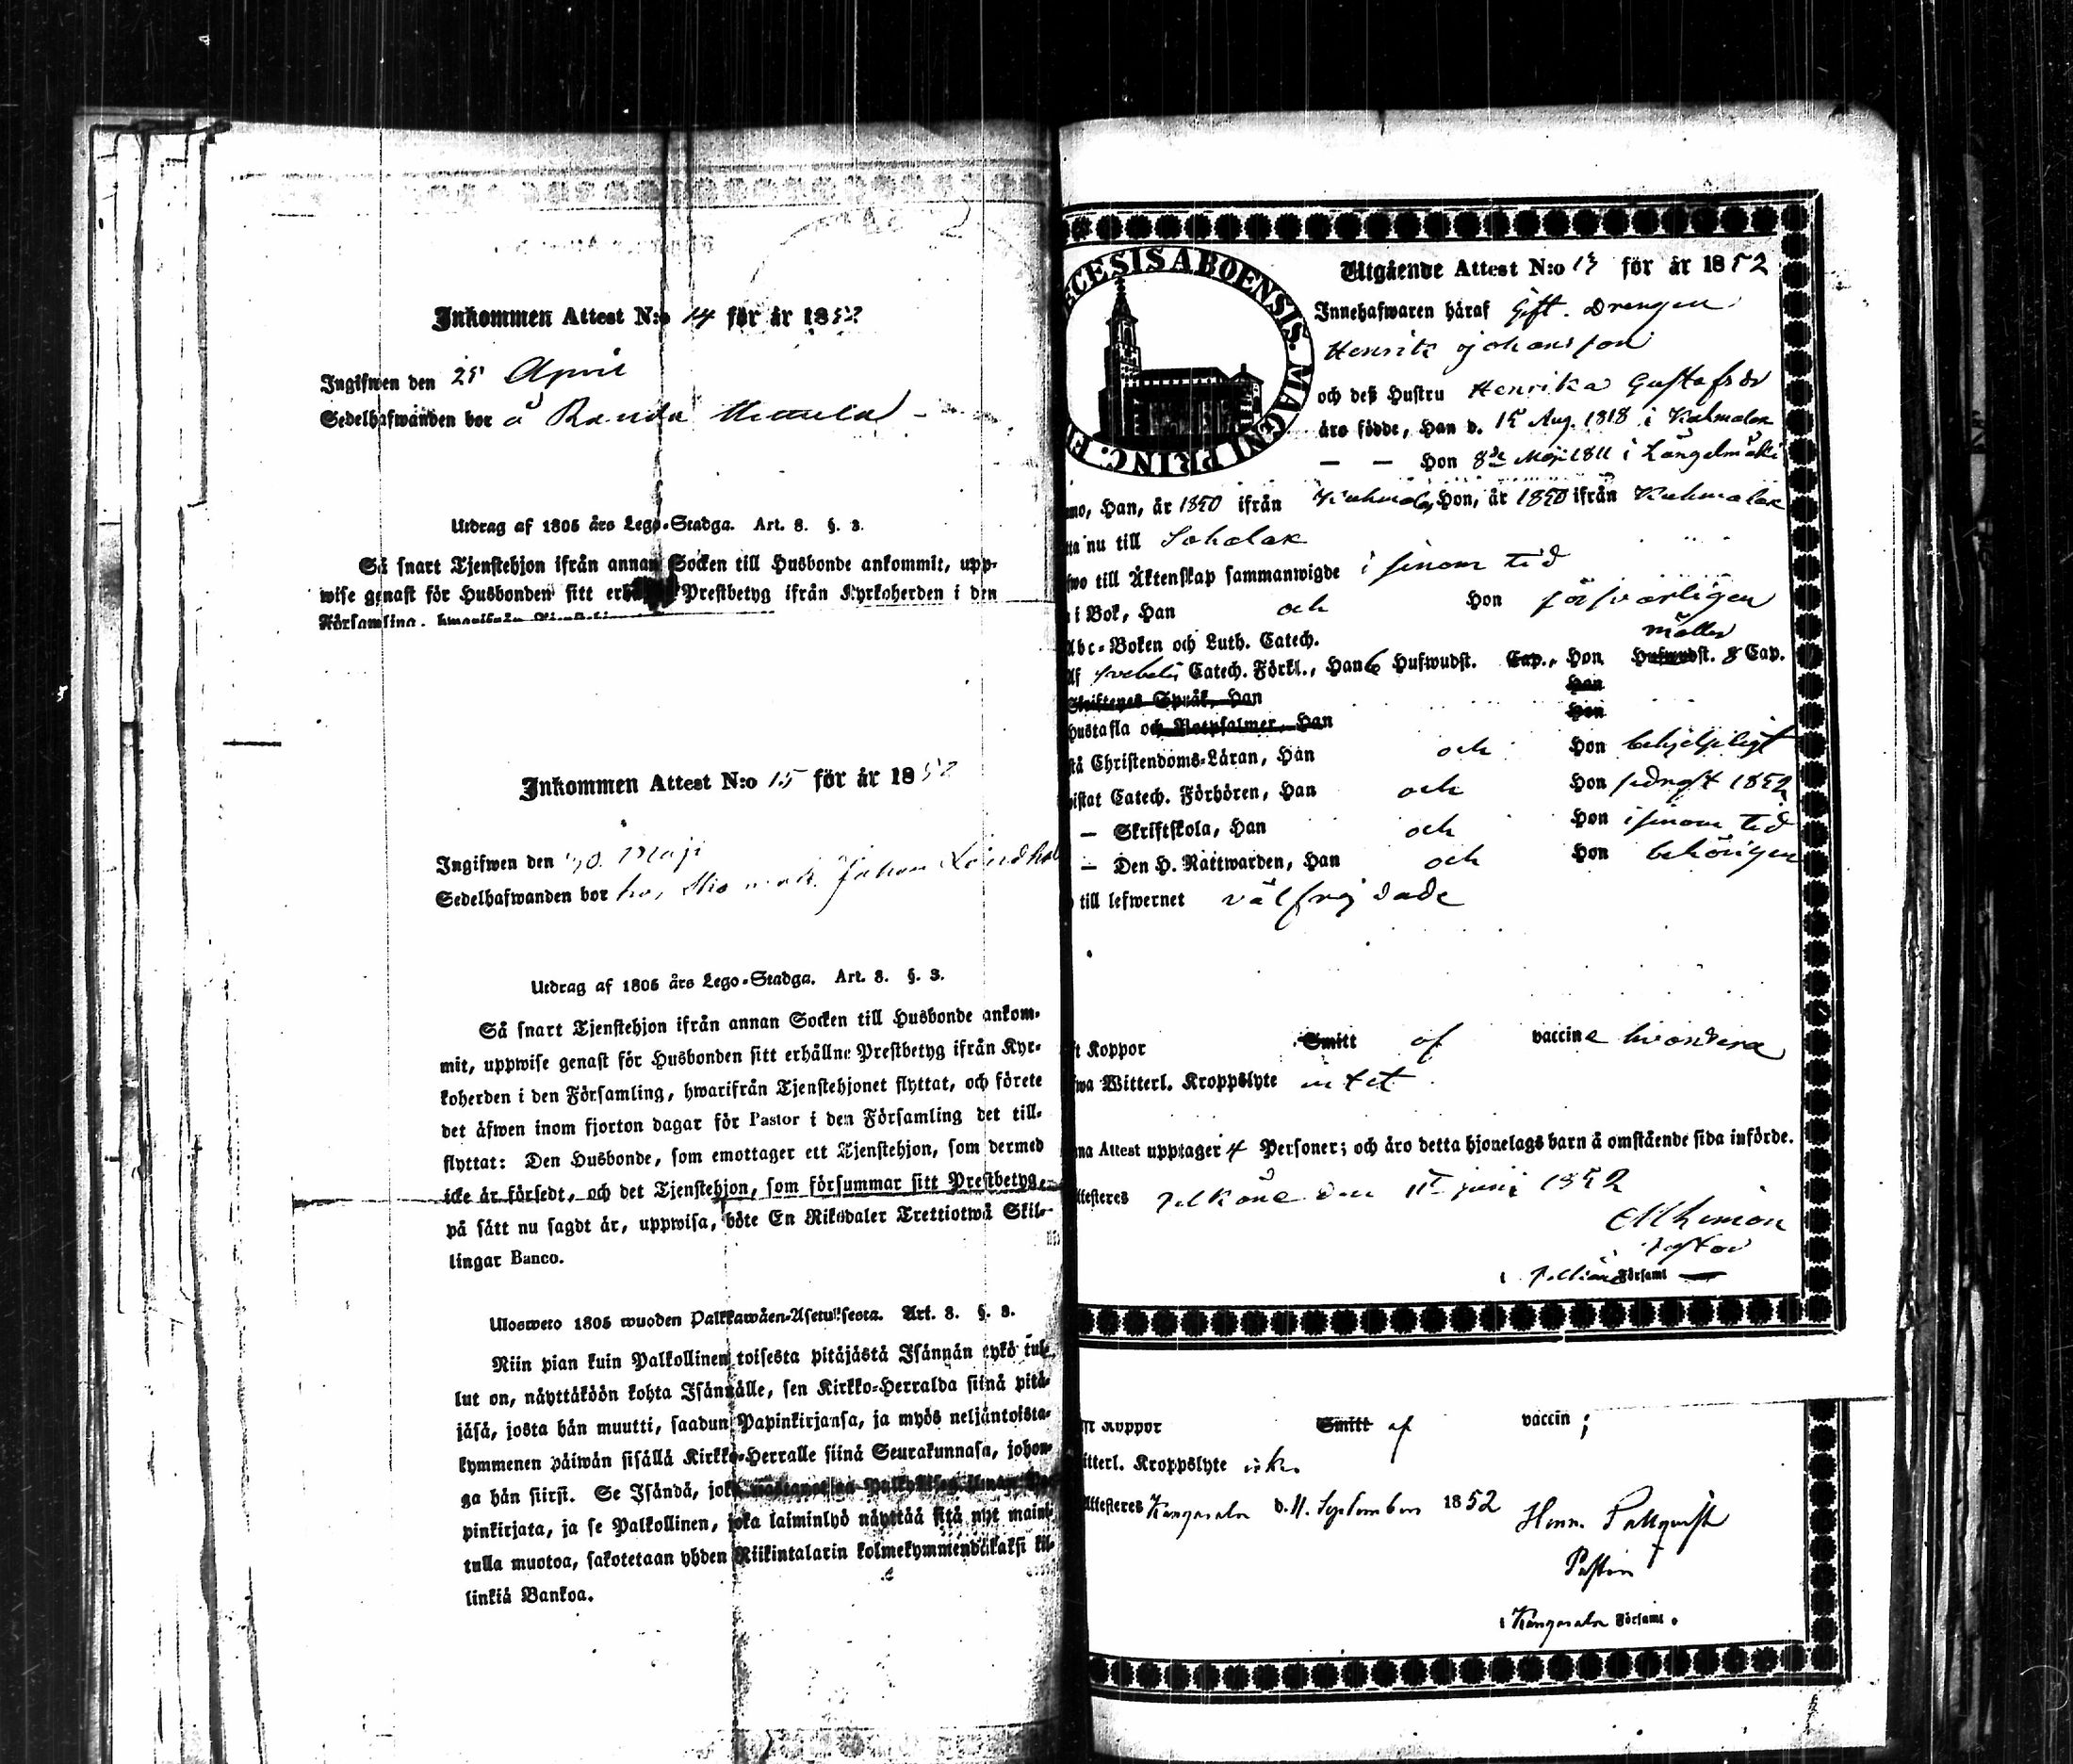 Inkommen Attest N:o 14 för år 1852
Ingifwen den 25 April
Sedelhafwanden bor å
Utdrag af 1805 års Lego-Stadga. Art. 8. §. 3.
Så snart Tjenstehjon ifrån annan Socken till Husbonde ankommit, upp-
wise genast för Husbonden sitt Prestbetyg ifrån Kyrkoherden i den
Församling, hwarifrån
Inkommen Attest N:o 15 för år 1852
Ingifwen den 30 Maji
Sedelhafwanden bor hos Johan
Utdrag af 1805 års Lego-Stadga. Art. 8. §. 3.
Så snart Tjenstehjon ifrån annan Socken till Husbonde ankom-
mit, uppwise genast för Husbonden sitt erhållne Prestbetyg ifrån Kyr-
koherden i den Församling, hwarifrån Tjenstehjonet flyttat, och förete
det äfwen inom fjorton dagar för Pastor i den Församling det till-
flyttat: Den Husbonde, som emottager ett Tjenstehjon, som dermed
icke är försedt, och det Tjenstehjon, som försummar sitt Prestbetyg,
på sätt nu sagdt är, uppwisa, böte En Riksdaler Trettiotwå Skil-
lingar Banco.
Ulosweto 1805 wuoden Palkkawäen-Asetuksesta. Art. 8. §. 3.
Niin pian kuin Palkollinen toisesta pitäjästä Isännän tykö tul-
lut on, näyttäköön kohta Isännälle, sen Kirkko-Herralda siinä pitä-
jäsä, josta hän muutti, saadun Papinkirjansa, ja myös neljäntoista-
kymmenen päiwän sisällä Kirkko-Herralle siinä Seurakunnasa, johon-
ga hän siirsi. Se Isändä, joka
pinkirjata, ja se Palkollinen, joka laiminlyö näyttää sitä nyt maini-
tulla muotoa, sakotetaan yhden Riikintalarin kolmekymmendäkaksi kil-
linkiä Bankoa.
CESIS ABOENSIS. MAGNI PRINC. FI
Utgående Attest N:o 13 för år 1852
Innehafwaren häraf Gift. Drengen
Henrik Johansson
och deß Hustru Henrika Gustafsdr
äro födde, Han d. 15 Aug. 1818 i Kuhmalax
— — Hon 8de Maji 1811 i Längelmäki
mo, Han, år 1850 ifrån Hon, år 1850 ifrån Kuhmalax
tta nu till Sahalax
fwo till Äktenskap sammanwigde i sinom tid
i Bok, Han och Hon försvarligen
Abc-Boken och Luth. Catech.
måtter
Af Svebelii Catech. Förkl., Han 6 Hufwudst. Cap., Hon Hufwudst. 8 Cap.
Skriftenes Språk, Han Hon
Hustafla och Botpsalmer, Han Hon
stå Christendoms-Läran, Han och Hon behjelpligt
wistat Catech. Förhören, Han och Hon sednast 1852
— Skriftskola, Han och Hon i sinom tid
— Den H. Nattwarden, Han och Hon behörigen
till lefwernet välfrejdade
ft Koppor Smitt af vaccine
fwa Witterl. Kroppslyte intet
na Attest upptager 4 Personer; och äro detta hjonelags barn å omstående sida införde.
ttesteres Pelkäne den 11 juni 1852
Pastor
i Pelkäne Församl
ft Koppor Smitt af vaccin;
itterl. Kroppslyte
Attesteres Kangasala d. 11. September 1852 Henr. Pallqvist
Pastor
i Kangasala Församl.